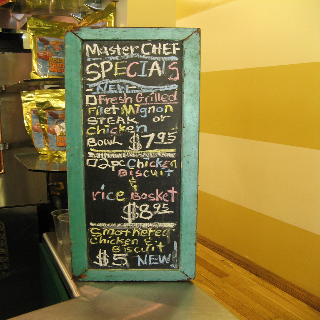 Master CHEF
SPECIALS
NEW
Fresh Grilled
Filet Mignon
STEAK or
Chicken
Bowl $7.95
2pc Chicken
Biscuit
&
rice Basket
$8.95
Smothered
Chicken &
Biscuit
$5 NEW